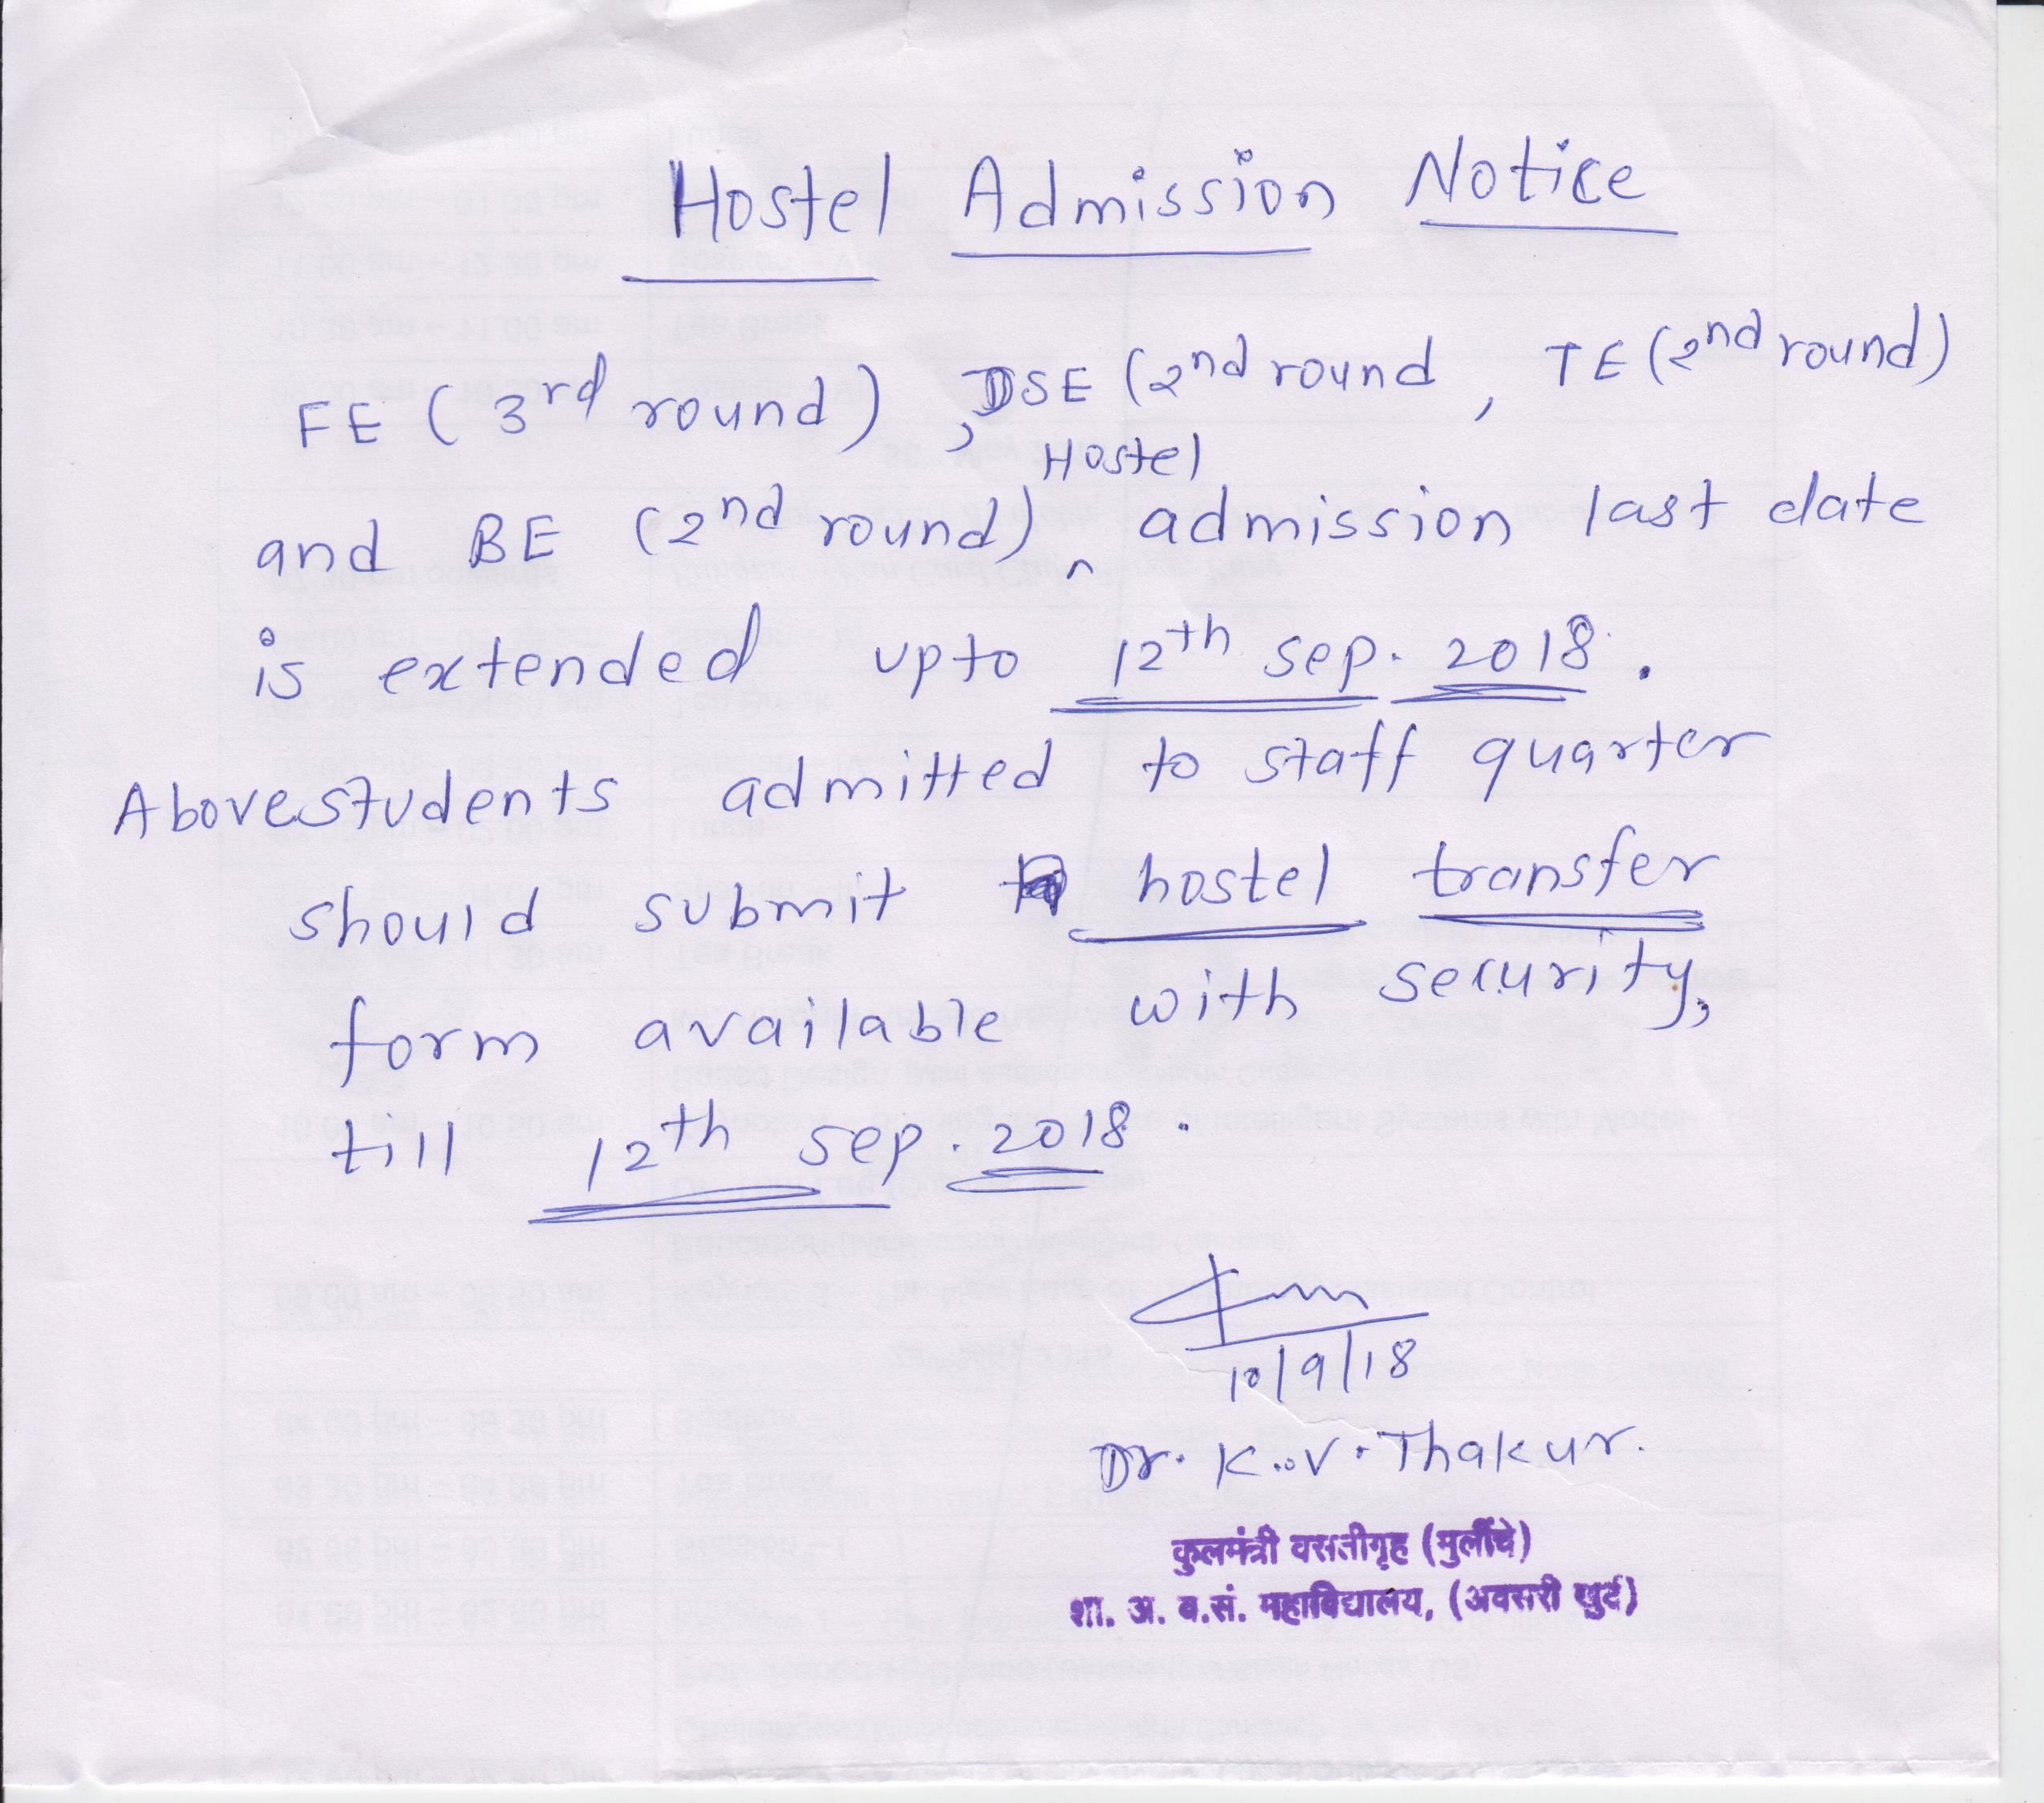 Hostel Admission Notice
FE (3rd round), DSE (2nd round, TE (2nd round)
and BE (2nd round) Hostel admission last date
is extended upto 12th sep. 2018.
Above students admitted to staff quarter
should submit hostel transfer
form available with security,
till 12th sep. 2018.
10/9/18
Dr. K.V. Thakur.
कुलमंत्री वसतीगृह (मुलींचे)
शा. अ. व.सं. महाविद्यालय, (अवसरी खुर्द)